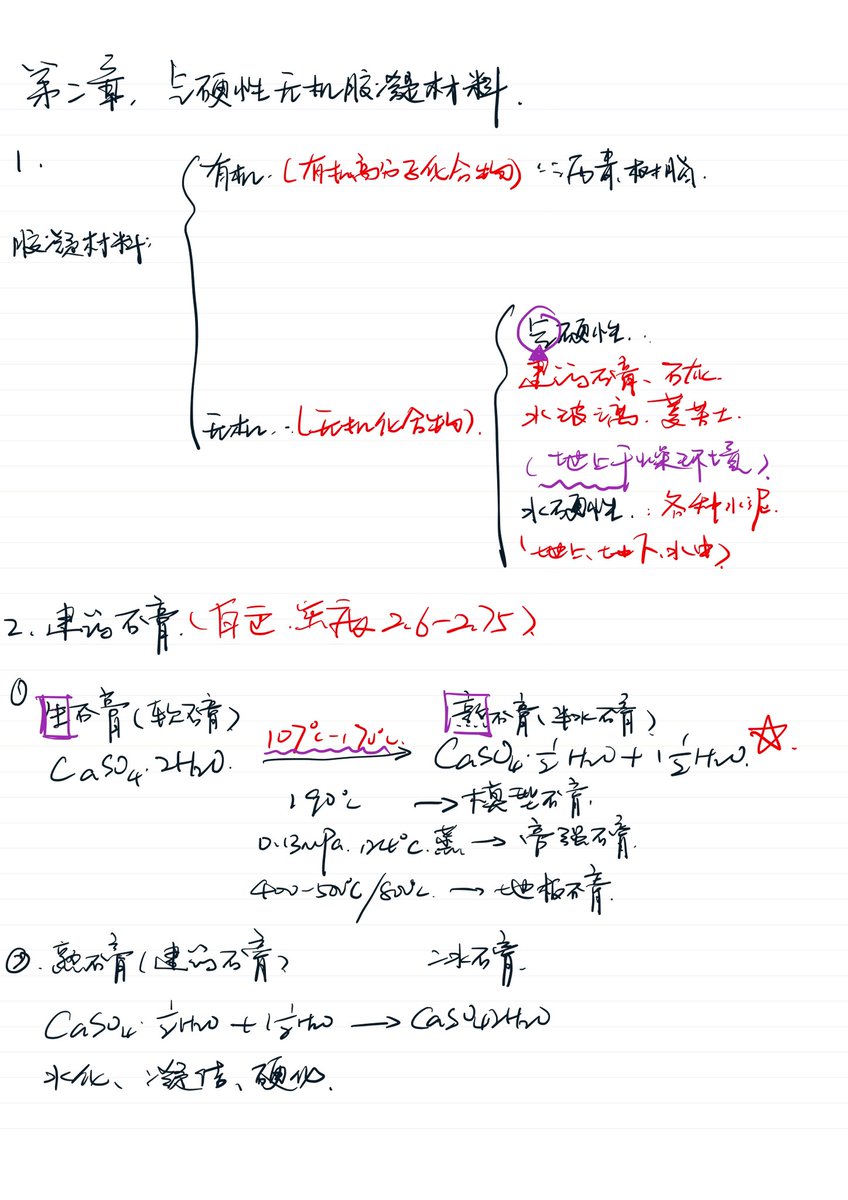 第二章、气硬性无机胶凝材料.
1.
胶凝材料:
有机.(有机高分子化合物):沥青、树脂.
无机:(无机化合物).
气硬性:
建筑石膏、石灰
水玻璃、菱苦土.
(地上干燥环境)
水硬性:各种水泥.
(地上、地下、水中)
2、建筑石膏.(白色.密度2.6-2.75)
① 生石膏(软石膏) 熟石膏(半水石膏)
CaSO4·2H2O. 107℃-170℃ CaSO4·1/2H2O+1 1/2H2O. ☆
190℃ →模型石膏.
0.13MPa.124℃.蒸→高强石膏.
400-500℃/800℃.→地板石膏.
②.熟石膏(建筑石膏) 二水石膏.
CaSO4·1/2H2O+1 1/2H2O→CaSO42H2O
水化、凝结、硬化.